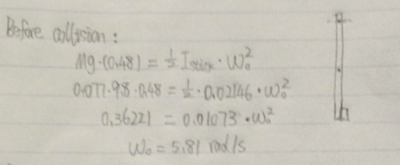 Before collision:
Mg·(0.48) = ½ I stick · ω₀²
0.077·9.8·0.48 = ½ · 0.02146 · ω₀²
0.36221 = 0.01073 · ω₀²
ω₀ = 5.81 rad/s